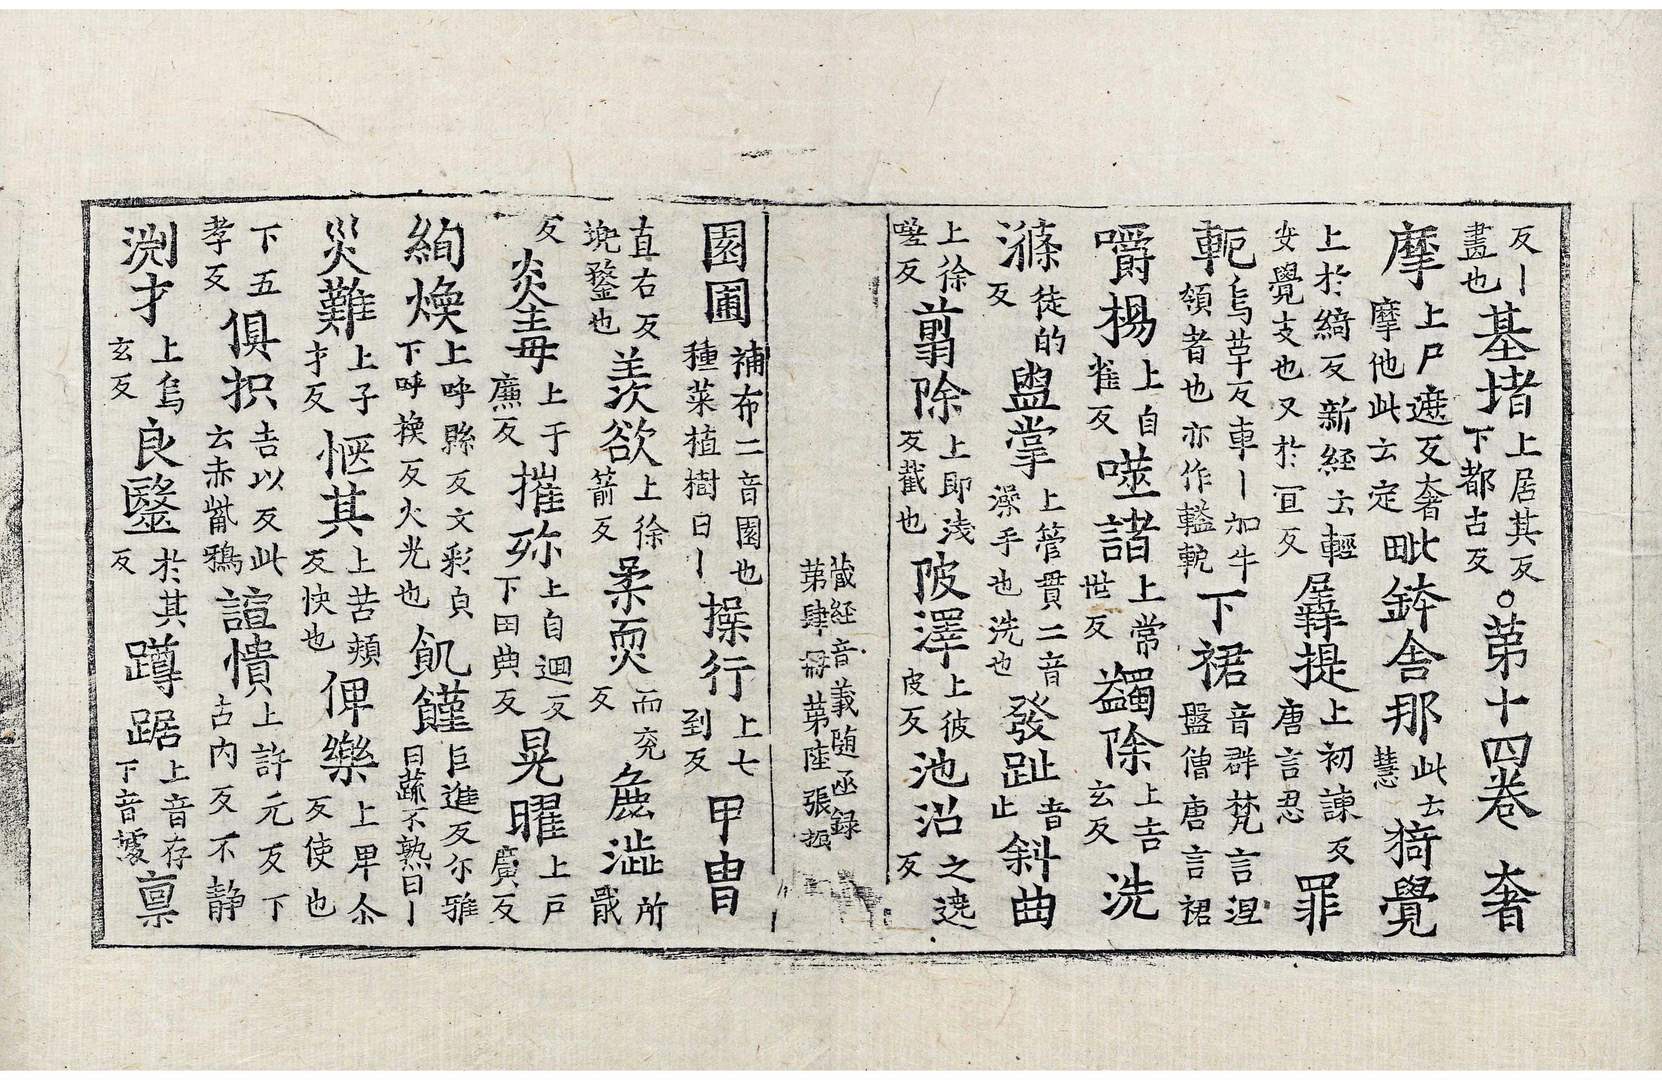 反丨畫也基堵上居其反下都古反○第十四卷奢
摩上尸遮反奢摩他此云定毗鉢舍那此云慧猗覺
上於綺反新経云輕安覺支也又於冝反羼提上初諫反唐言忍罪
軛烏草反車丨加牛領者也亦作䡾軶下裙音群梵言涅盤僧唐言裙
嚼楊上自雀反噬諸上常世反蠲除上古玄反洗
滌徒的反盥掌上管貫二音澡手也洗也發趾音止斜曲
上徐嗟反翦除上即浅反截也陂澤上彼皮反池沼之遶反
藏経音義随函録
第肆冊第陸張
園圃補布二音園也種菜植樹曰丨操行上七到反甲冑
直右反兜鍪也羡欲上徐箭反柔耎而兖反麁澁所戢
反炎毒上于廉反摧殄上自迴反下田典反晃曜上戸廣反
絢煥上呼縣反文彩皃下呼換反火光也飢饉巨進反尔雅曰蔬不熟曰丨
災難上子才反惬其上苦頰反快也俾樂上卑尒反使也
下五孝反俱抧吉以反此云赤觜鴉諠憒上許元反下古内反不静
渊才上烏玄反良醫於其反蹲踞上音存下音據禀